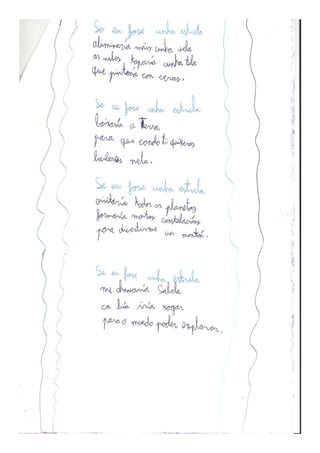 Se eu fose unha estrela
alumnaria máis cunha vela
as noites toparía cunha tela
que pintaria con ceras.
Se eu fose unha estrela
baixaría a Terra
para que cando ti quixeras
bailaras nela.
Se eu fose unha estrela
visitaría todos os planetas
formaría moitas constelacións
para divertirme un montón.
Se eu fose unha estrela
me chamaría Sabela
ca lúa iria xogar
para o mundo poder explorar.